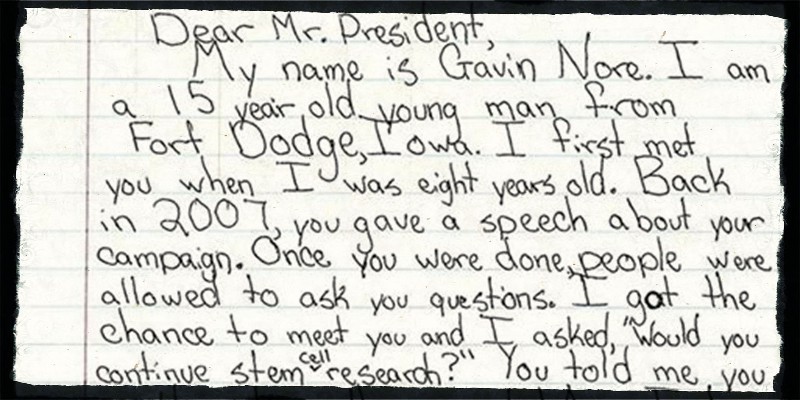 Dear Mr. President,
My name is Gavin Nore. I am
a 15 year old young man from
Fort Dodge, Iowa. I first met
you when I was eight years old. Back
in 2007, you gave a speech about your
campaign. Once you were done, people were
allowed to ask you questions. I got the
chance to meet you and I asked, "Would you
continue stem cell research?" You told me, you